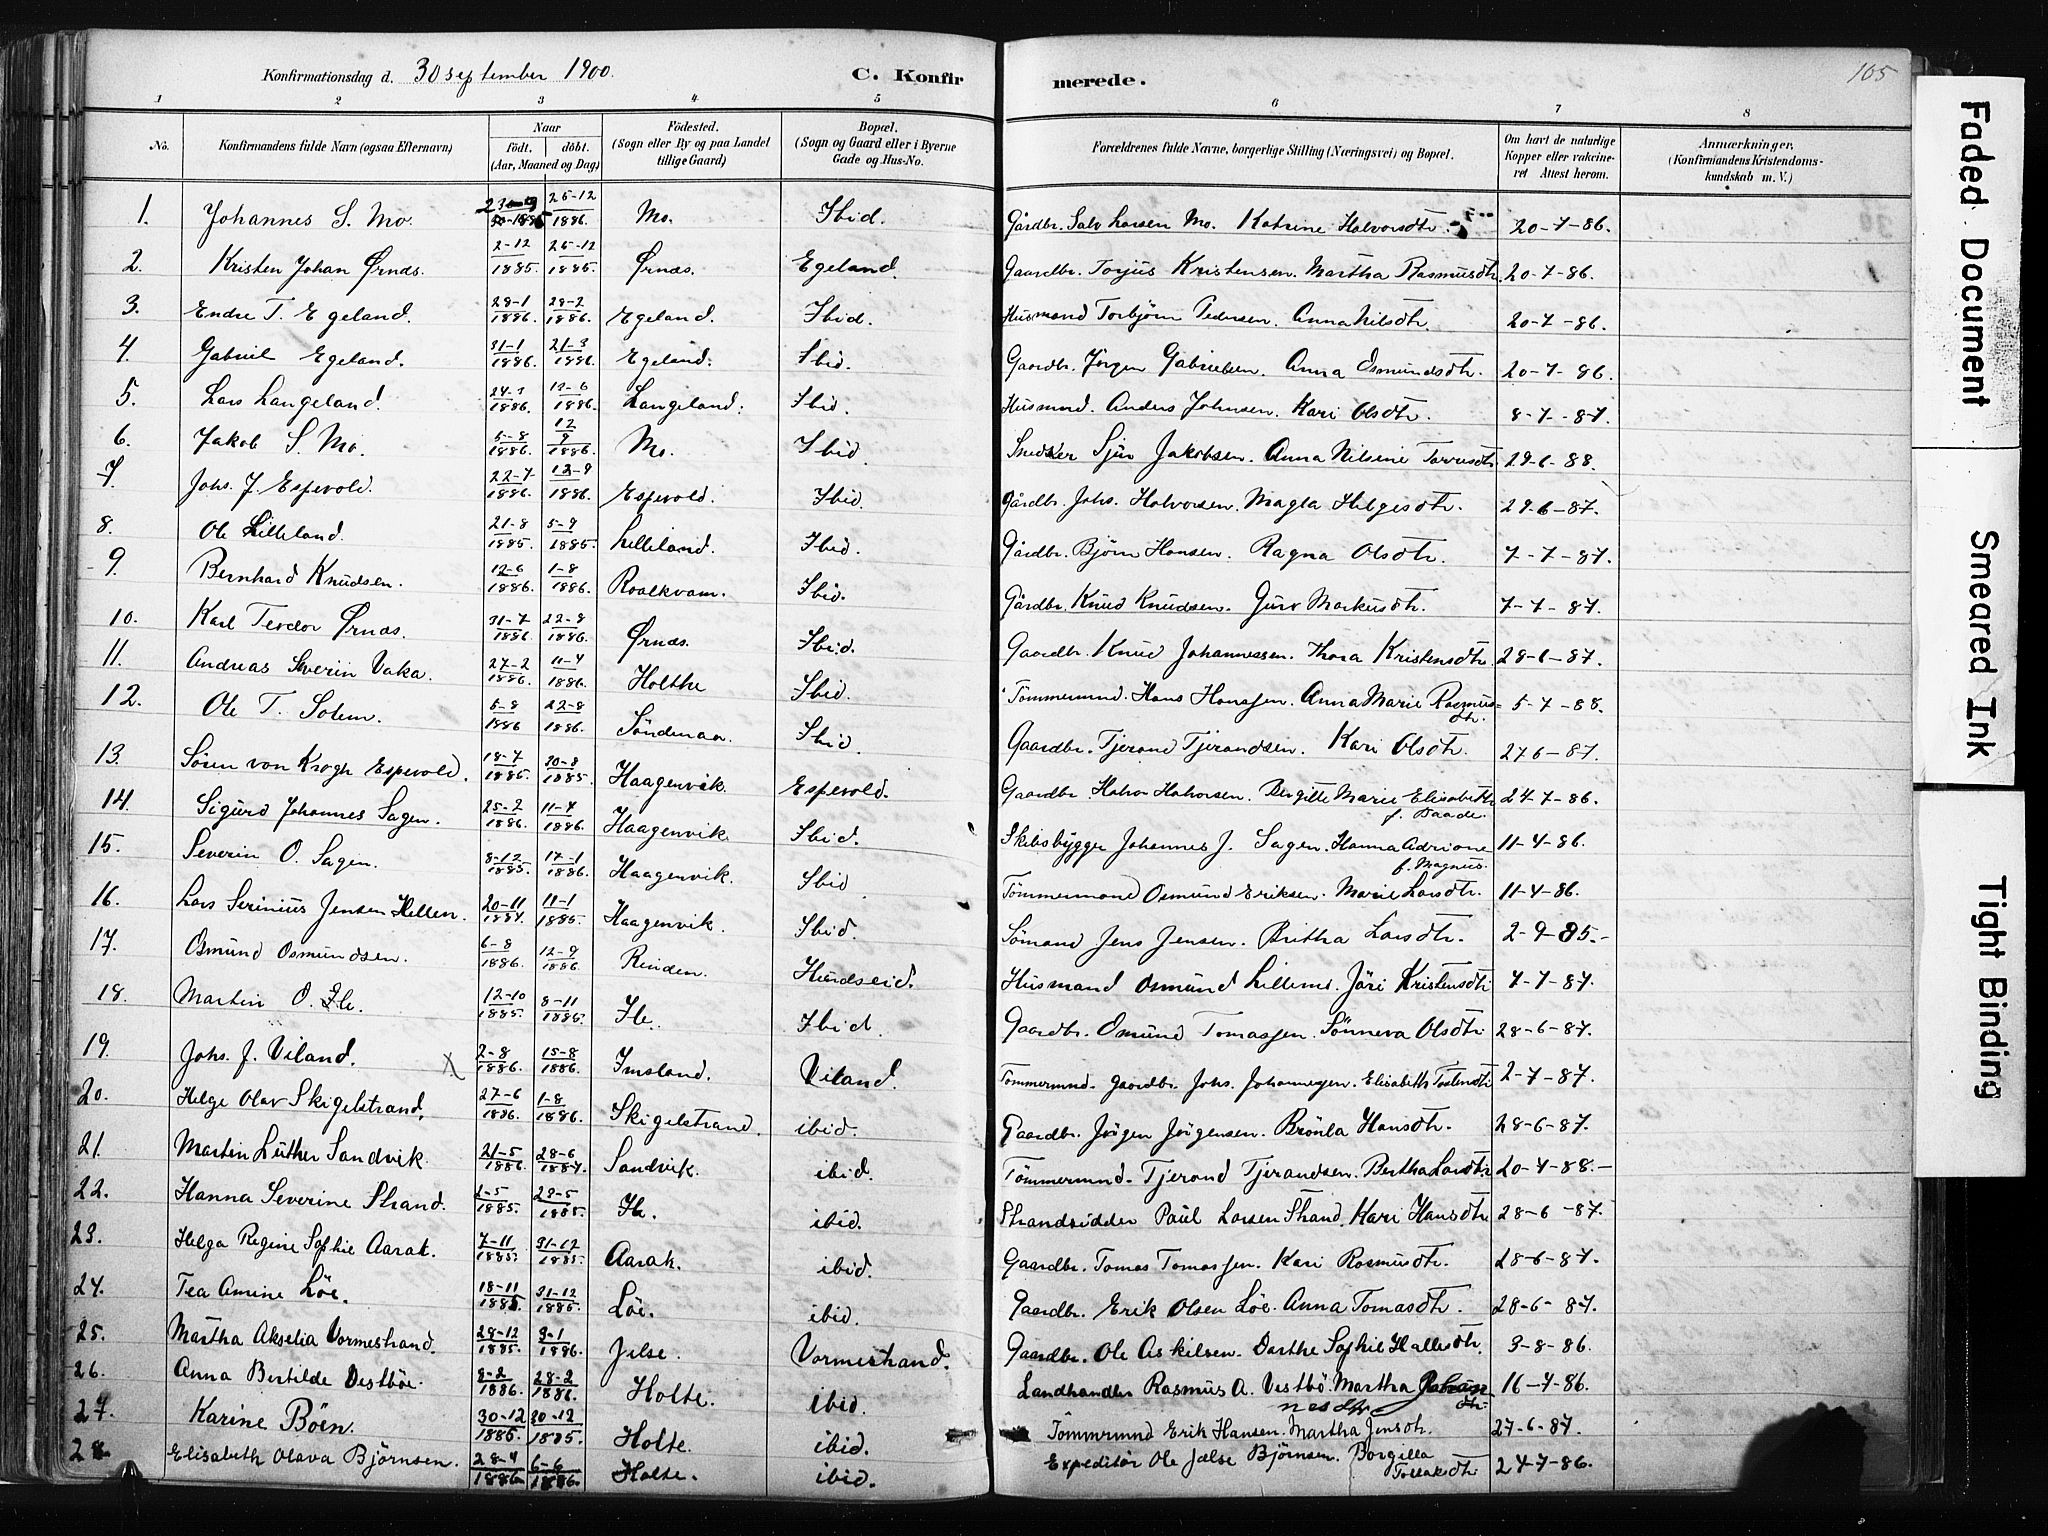 Konfirmationsdag d. 30 september 1900. C. Konfir merede. 105
1 2 3 4 5 6 7 8
No. Konfirmandens fulde Navn (ogsaa Efternavn) Naar Födt. döbt. (Aar, Maaned og Dag) Födested. (Sogn eller By og paa Landet tillige Gaard) Bopæl. (Sogn og Gaard eller i Byerne Gade og Hus-No. Forældrenes fulde Navne, borgerlige Stilling (Næringsvei) og Bopæl. Om havt de naturlige Kopper eller vakcineret Attest herom. Anmærkninger. (Konfirmandens Kristendomskundskab m. V.)
1. Johannes S. Mo. 25-12 1886. Mo. Ibid. Gårdbr. Salv Larsen Mo. Katrine Halvorsdtr. 20-7-86.
2. Kristen Johan Ørnæs. 2-12 1885. 25-12 1885. Ørnæs. Egeland. Gaardbr. Torjus Kristensen. Martha Rasmusdtr. 20-7-86.
3. Endre T. Egeland. 28-1 1886. 28-2 1886. Egeland. Ibid. Husmand Torbjörn Pedersen. Anna Nilsdtr. 20-7-86.
4. Gabriel Egeland. 31-1 1886. 21-3 1886. Egeland. Ibid. Gaardbr. Jörgen Gabrielsen. Anna Osmundsdtr. 20-7-86.
5. Lars Langeland. 24-3 1886. 12-6 1886. Langeland. Ibid. Husmnd. Anders Johnsen. Kari Olsdtr. 8-7-87.
6. Jakob S. Mo. 5-8 1886. 12 9 1886. Mo. Ibid. Snedker Sjur Jakobsen. Anna Nilsine 29-6-88.
7. Johs. J. Espevold. 22-7 1886. 12-9 1886. Espevold. Ibid. Gårdbr. Johs. Halvorsen. Magla Helgesdtr. 29-6-87.
8. Ole Lilleland. 21-8 1885. 5-9 1885. Lilleland. Ibid. Gårdbr. Björn Hansen. Ragna Olsdtr. 7-7-87.
9. Bernhard Knudsen. 12-6 1886. 1-8 1886. Roalkvam. Ibid. Gårdbr. Knud Knudsen. Guro Markusdtr. 7-7-87.
10. Karl Teodor Ørnæs. 31-7 1886. 22-8 1886. Ørnæs. Ibid. Gaardbr. Knud Johannessen. Thora Kristensdtr. 28-6-87.
11. Andreas Severin Vaka. 27-2 1886. 11-4 1886. Holthe Ibid. Tömmermnd. Hans Hanssen. Anna Marie Rasmusdtr. 5-7-88.
12. Ole T. Solem. 5-8 1886 22-8 1886. Söndenaa. Ibid. Gaardbr. Tjerand Tjerandsen. Kari Olsdtr. 27 6-87.
13. Sören von Krogh Espevold. 18-7 1885. 30-8 1885. Haagenvik. Espevold. Gaardbr. Halvor Halvorsen. Bergitte Marie Elisabeth f. Baade. 24-7-86.
14. Sigurd Johannes Sagen. 25-2 1886. 11-4 1886. Haagenvik. Ibid. Skibsbygger Johannes J. Sagen. Hanna Adriane f. Magnus. 11-4-86.
15. Severin O. Sagen. 8-12 1885. 17-1 1886. Haagenvik. Ibid Tömmermand Osmund Eriksen. Marie Larsdtr. 11-4-86.
16. Lars Serinius Jensen Hellen. 20-11 1884. 11-1 1885. Haagenvik. Ibid. Sömand Jens Jensen. Britha Larsdtr. 2-9-85.-
17. Osmund Osmundsen. 6-8 1886. 12-9 1886. Rinden. Hundseid. Husmand Osmund Jöri Kristensdtr 7-7-87.
18. Martin O. Ile. 12-10 1885. 8-11 1885. Ile. Ibid. Gaardbr. Osmund Tomassen. Sönneva Olsdtr. 28-6-87.
19. Johs. J. Viland. X 2-8 1886. 15-8 1886. Imsland. Viland. Tömmermnd. gaardbr. Johs. Johannessen. Elisabeth Tostensdtr 2-7-87.
20. Helge Olav Skigelstrand. 27-6 1886. 1-8 1886. Skigelstrand. ibid. Gaardbr. Jörgen Jörgensen. Brönla Hansdtr. 28-6-87.
21. Martin Luther Sandvik. 21-5 1886. 28-6 1887. Sandvik. ibid. Tömmermnd. Tjerand Tjerandsen. Bertha Larsdtr. 20-4-88.-
22. Hanna Severine Strand. 2-5 1885. 28-5 1885. Ile. ibid. Strandsidder Paul Larsen Strand. Kari Hansdtr 28-6-87.
23. Helga Regine Sofhie Aarak. 7-11 1885. 31-12 1885. Aarak. ibid. Gaardbr. Tomas Tomassen. Kari Rasmusdtr. 28-6-87.
24. Tea Amine Löe. 18-11 1885. 31-12 1885. Löe. ibid. Gaardbr. Erik Olsen Löe. Anna Tomasdtr. 28-6-87.
25. Martha Akselia Vormestrand. 28-12 1885. 3-1 1886. Jelse. Vormestrand. Gaardbr. Ole Askilsen. Dorthe Sofhie Halledtr. 3-8-86.
26. Anna Bertilde Vestböe. 8-2 1886. 28-2 1886. Holte. ibid. Landhandler Rasmus A. Vestbö. Martha Johannesdtr 16-7-86.
27. Karine Böen. 30-12 1885. 30-12 1885. Holte. ibid. Tömmermnd Erik Hansen. Martha Jensdtr. 27-6-87.
28. Elisabeth Olava Björnsen. 28-4 1886 6-6 1886. Holte. ibid. Expeditör Ole Jelse Björnsen. Borgilla Tollaksdtr 24-7-86.
Faded Document
Smeared Ink
Tight Binding